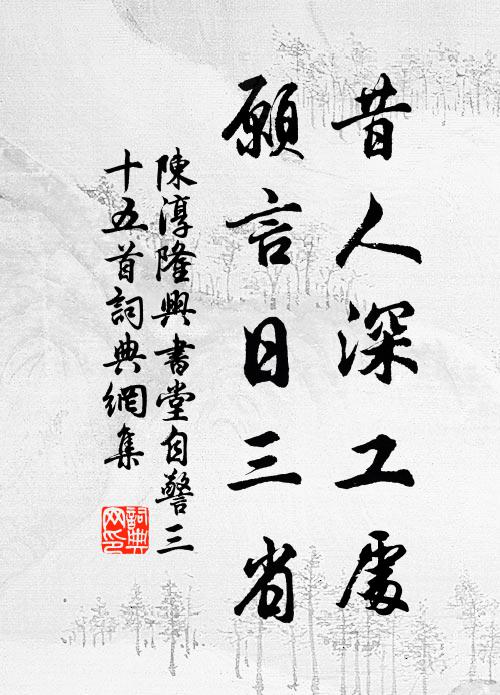 昔人深工處
願言日三省
陳淳隆興書堂自警三
十五首詞典網集
詞典
网印